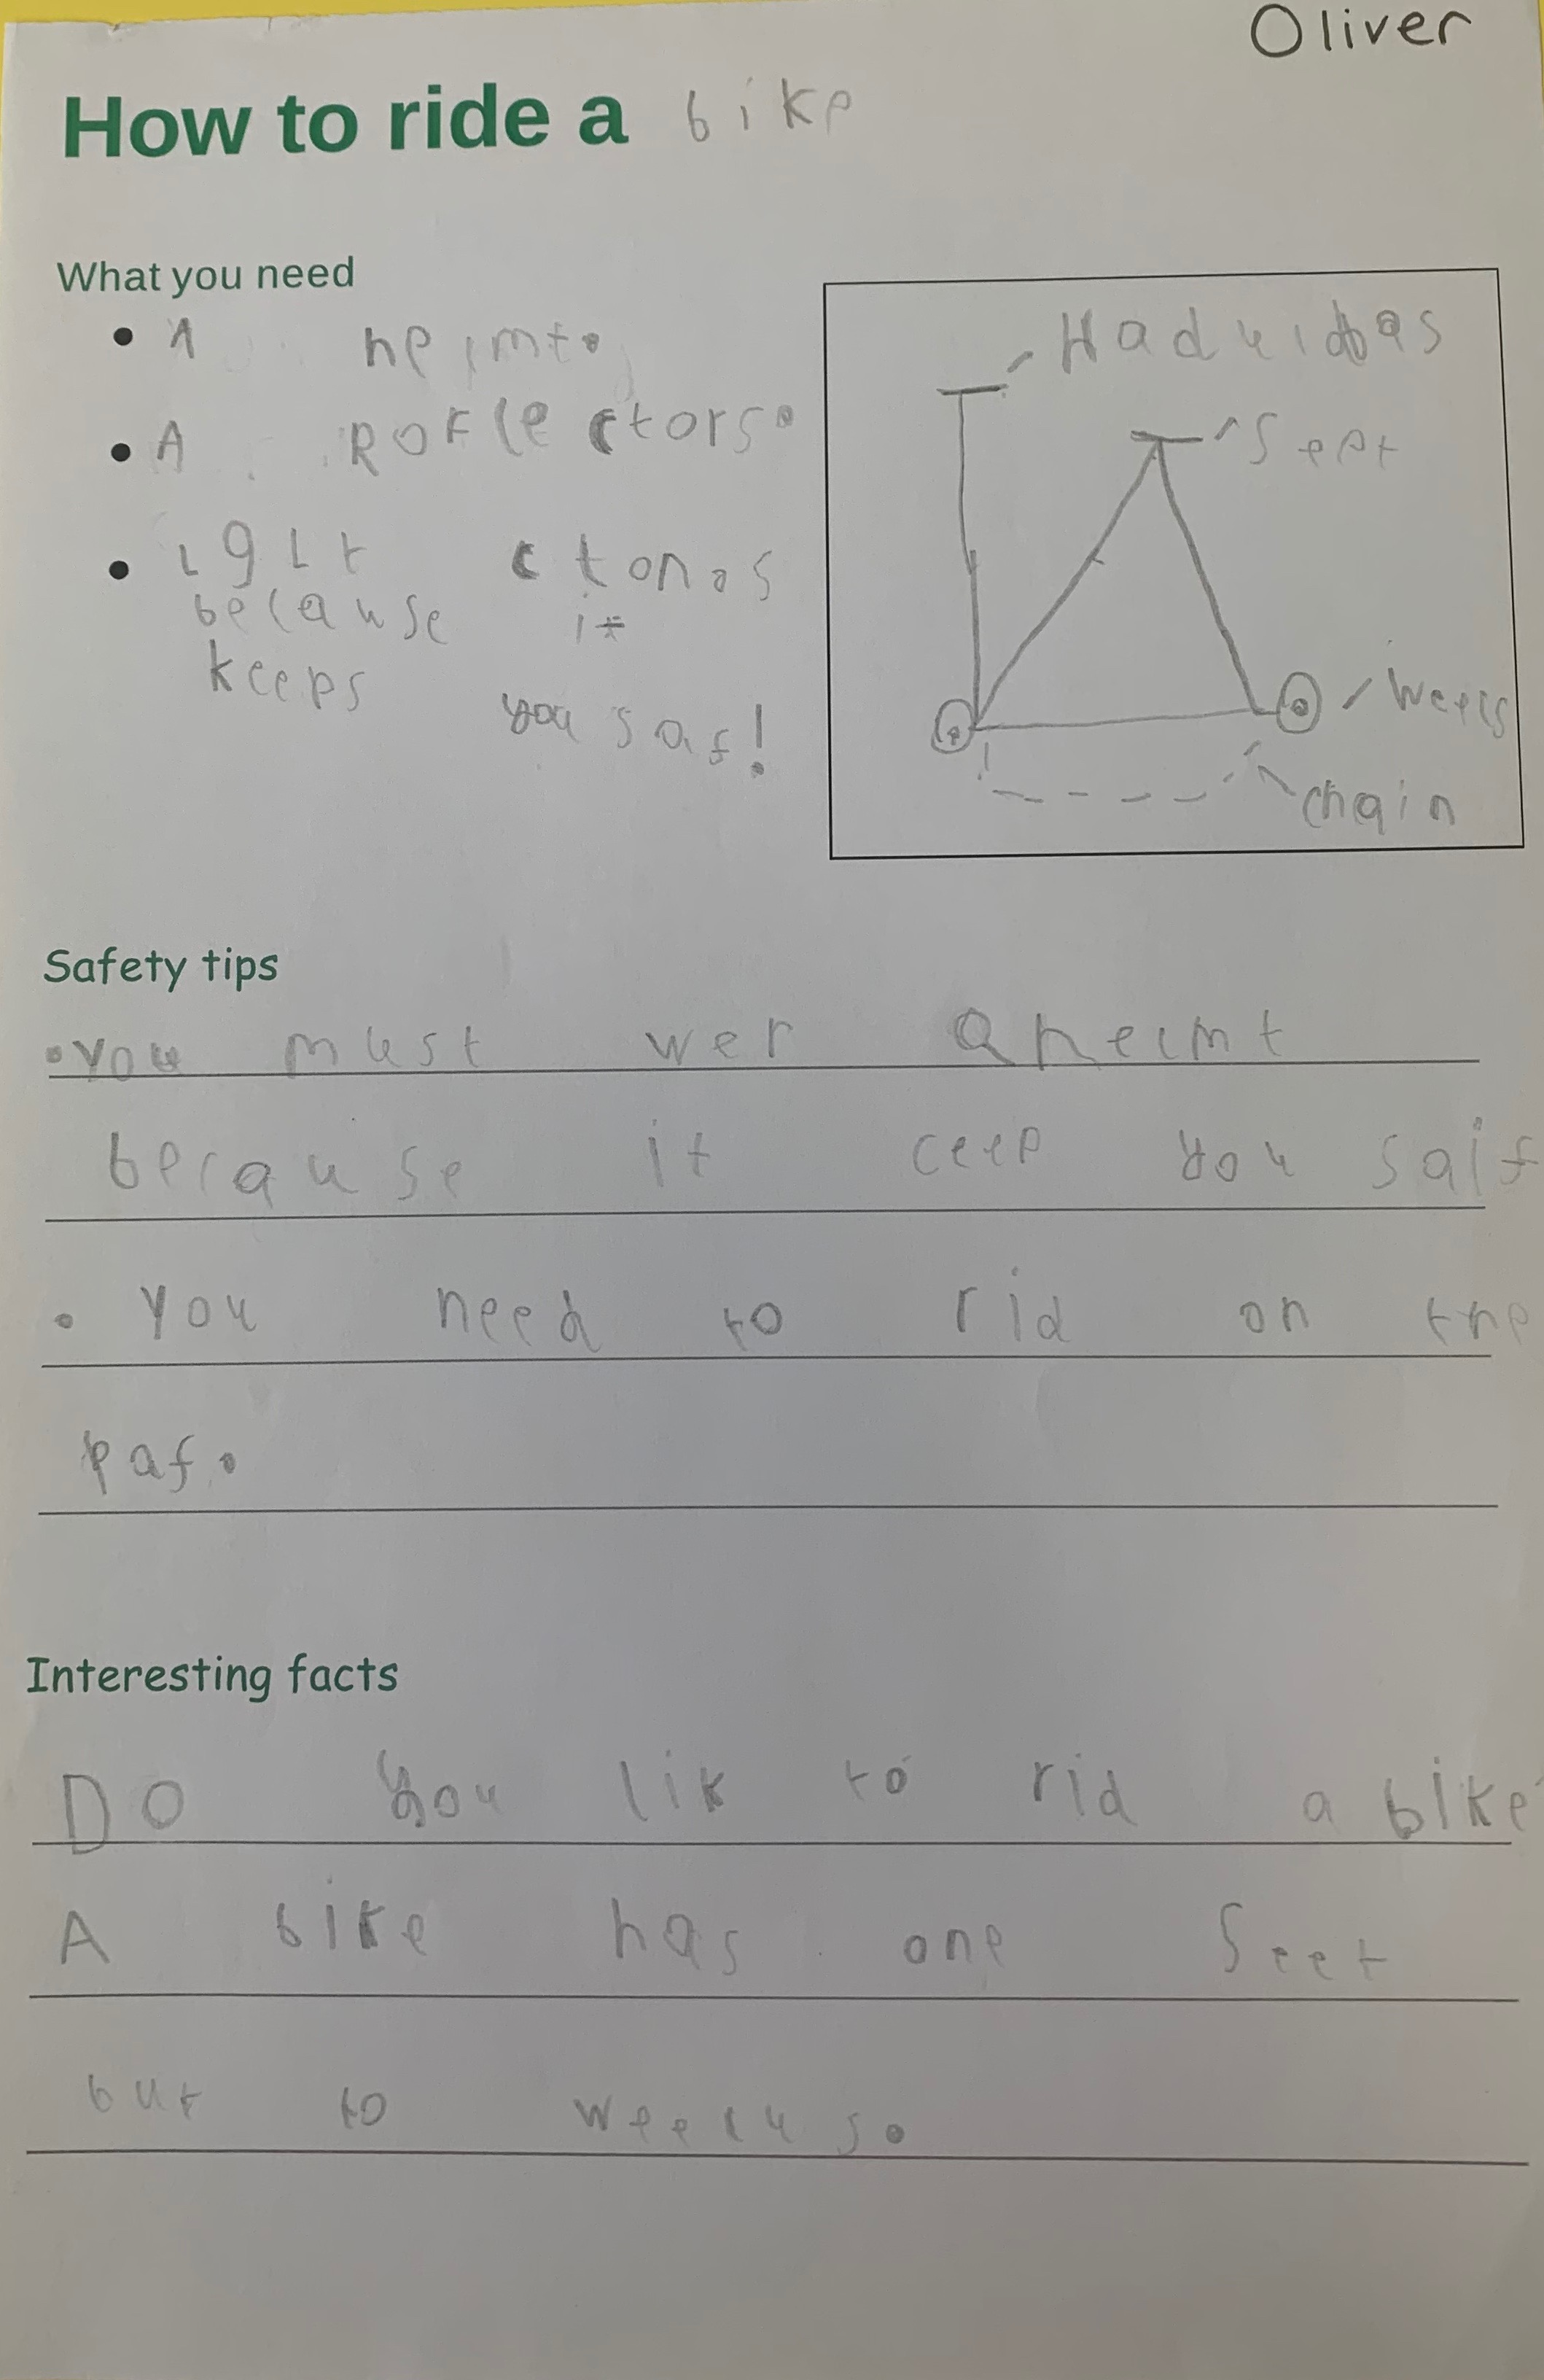 Oliver
How to ride a bike
What you need
• A helmt.
• A Roflectors.
• because it
keeps
you saf!
Haduidbas
Seat
Weels
chain
Safety tips
• you must wer a helmt
because it ceep you saif
• you need to rid on the
paf.
Interesting facts
Do you lik to rid a bike
A bike has one Seet
but to weelus.